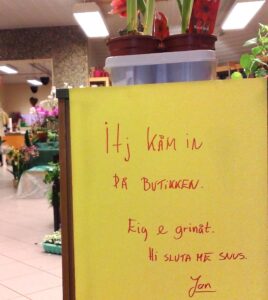 Itj KÅM IN
PÅ BUTIKKEN.
Eig e grinåt.
Hi SLUTA ME SNUS.
Jan